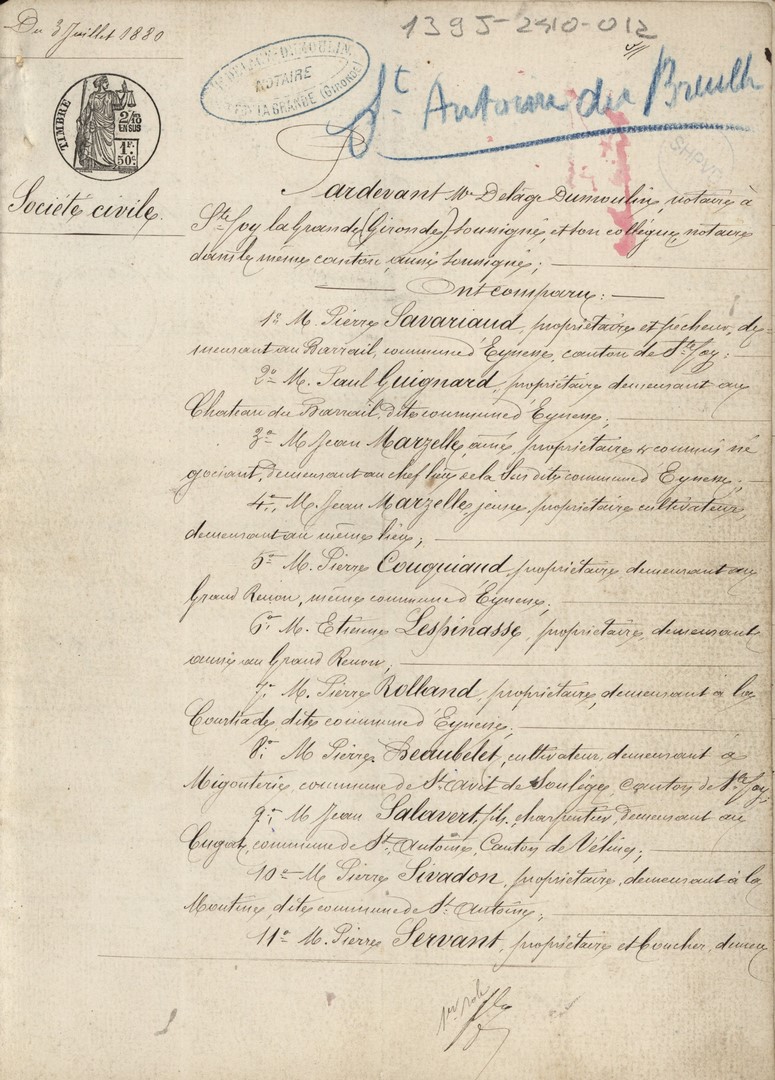 Du 3 Juillet 1880
1395-2410-012
DELAGE-DUMOULIN
NOTAIRE
STE FOY LA GRANDE (GIRONDE)
St Antoine du Breuilh
SHPVD
TIMBRE
2/10
EN SUS
1F.
50c.
Société civile.
Pardevant Me Delage Dumoulin, notaire à
Ste Foy la Grande (Gironde), soussigné, et son collègue, notaire
dans le même canton, aussi soussigné;
Ont comparu:
1o M. Pierre Savariaud, propriétaire et pêcheur, de-
meurant au Barrail, commune d'Eynesse, canton de Ste Foy;
2o M. Paul Guignard, propriétaire demeurant au
Chateau du Barrail, dite commune d'Eynesse;
3o M. Jean Marzelle, ainé, propriétaire & commis né
gociant, demeurant au chef lieu de la susdite commune d'Eynesse;
4o M. Jean Marzelle, jeune, propriétaire cultivateur,
demeurant au même lieu;
5o M. Pierre Couquiaud, propriétaire demeurant au
Grand Renon, même commune d'Eynesse;
6o M. Etienne Lespinasse, propriétaire, demeurant
aussi au Grand Renon;
7o M. Pierre Rolland, propriétaire, demeurant à la
Courtiade, dite commune d'Eynesse;
8o M. Pierre Beaubelet, cultivateur, demeurant à
Migouterie, commune de St Avit de Soulége, canton de Ste Foy;
9o M. Jean Salavert, fils, charpentier, demeurant au
Cugat, commune de St Antoine, Canton de Vélines;
10o M. Pierre Sivadon, propriétaire, demeurant à la
dite commune de St Antoine;
11o M. Pierre Servant, propriétaire et demeu
1er rôle